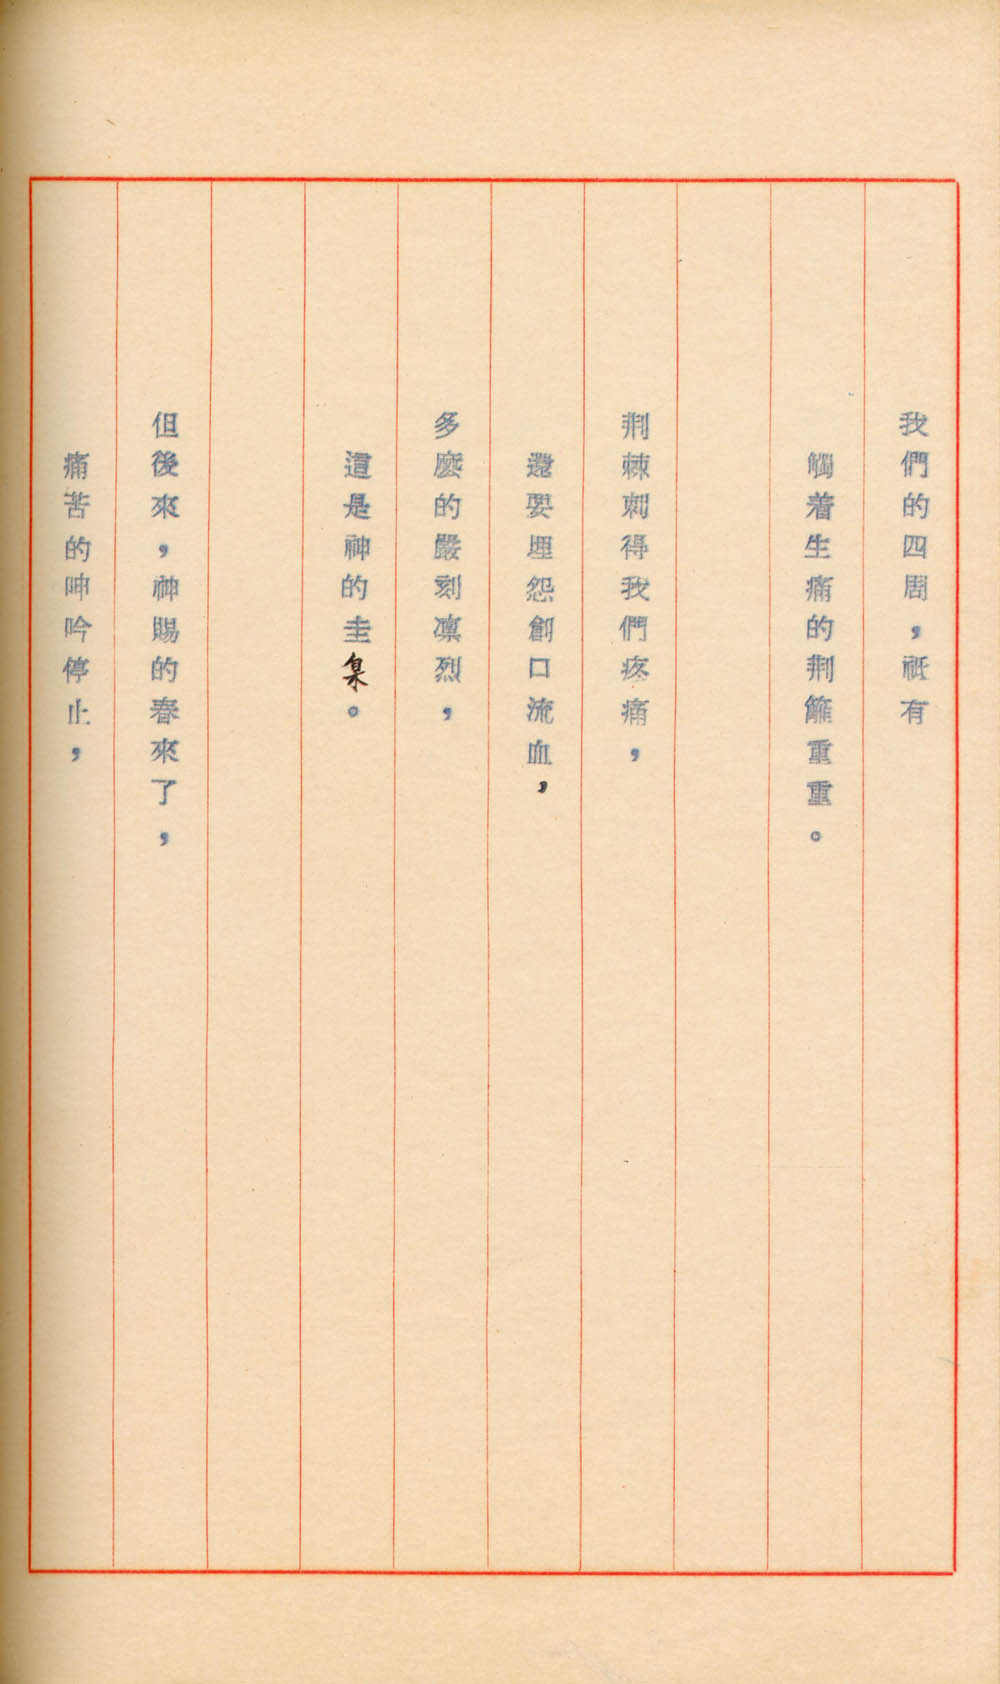 我們的四周，祇有
觸着生痛的荆籬重重。
荆棘刺得我們疼痛，
還要埋怨創口流血，
多麼的嚴刻凛烈，
這是神的圭臬。
但後來，神賜的春來了，
痛苦的呻吟停止，